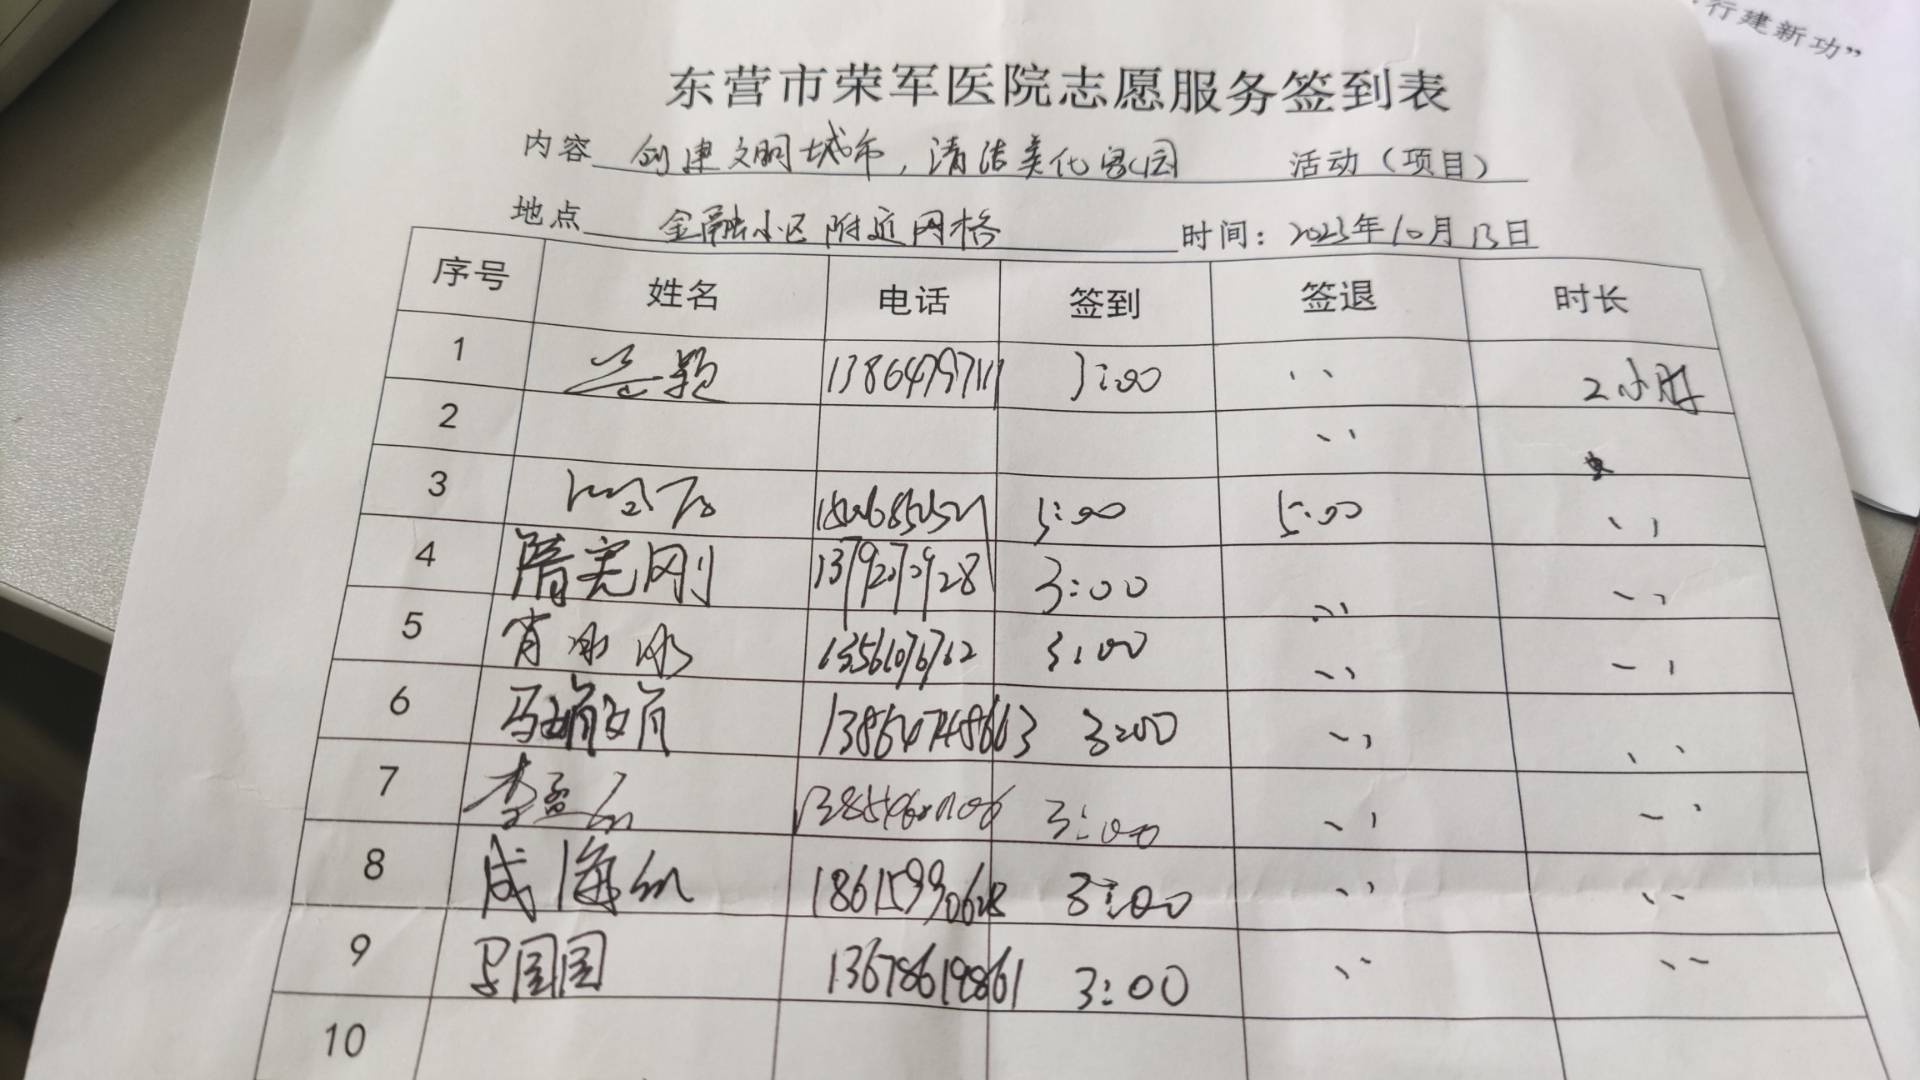 行建新功”
东营市荣军医院志愿服务签到表
内容 创建文明城市，清洁美化家园 活动（项目）
地点 金融小区附近网格 时间：2023年10月13日
序号 姓名 电话 签到 签退 时长
1 13864797111 3:00 〃 2小时
2 〃
3 3:00 5:00 〃
4 隋宪刚 13792720928 3:00 〃 〃
5 肖冰冰 13561076712 3:00 〃 〃
6 马 13864748663 3:00 〃 〃
7 李孟 3:00 〃 〃
8 成海红 18615990628 3:00 〃 〃
9 国国 13678619861 3:00 〃 〃
10